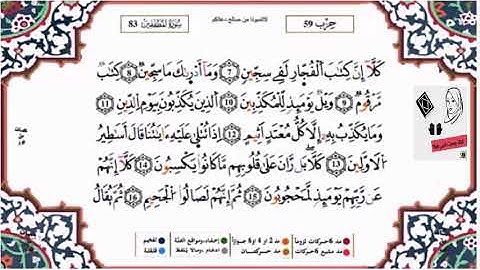 سُورَةُ المُطَفِّفِينَ 83
لاتنسونا من صالح دعائكم
حِزْب 59
كَلَّآ إِنَّ كِتَٰبَ ٱلْفُجَّارِ لَفِى سِجِّينٍ ⑦ وَمَآ أَدْرَىٰكَ مَا سِجِّينٌ ⑧ كِتَٰبٌ
مَّرْقُومٌ ⑨ وَيْلٌ يَوْمَئِذٍ لِّلْمُكَذِّبِينَ ⑩ ٱلَّذِينَ يُكَذِّبُونَ بِيَوْمِ ٱلدِّينِ ⑪
وَمَا يُكَذِّبُ بِهِۦٓ إِلَّا كُلُّ مُعْتَدٍ أَثِيمٍ ⑫ إِذَا تُتْلَىٰ عَلَيْهِ ءَايَٰتُنَا قَالَ أَسَٰطِيرُ
ٱلْأَوَّلِينَ ⑬ كَلَّا بَلْ رَانَ عَلَىٰ قُلُوبِهِم مَّا كَانُوا۟ يَكْسِبُونَ ⑭ كَلَّآ إِنَّهُمْ
عَن رَّبِّهِمْ يَوْمَئِذٍ لَّمَحْجُوبُونَ ⑮ ثُمَّ إِنَّهُمْ لَصَالُوا۟ ٱلْجَحِيمِ ⑯ ثُمَّ يُقَالُ
مد 6 حركات لزوما مد 2 أو 4 أو 6 جوازا إخفاء، ومواقع الغنّة تفخيم
مد مشبع 6 حركات مد حركتان ادغام، ومالا يلفظ قلقلة